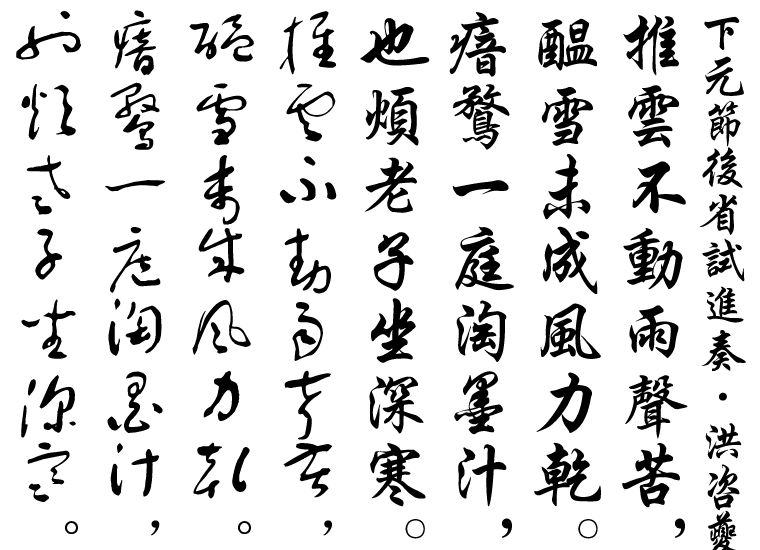 下元節後省試進奏・洪咨夔
推雲不動雨聲苦，
醞雪未成風力乾。
瘖鶩一庭淘墨汁，
也煩老子坐深寒。
推雲不動雨聲苦，
醞雪未成風力乾。
瘖鶩一庭淘墨汁，
也煩老子坐深寒。